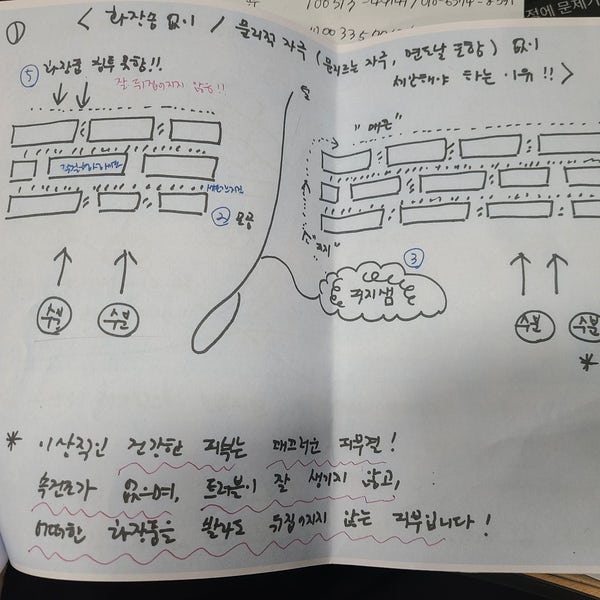 ① < 화장솜 없이 / 물리적 자극 (문지르는 자극, 면도날 포함) 없이
세안해야 하는 이유!! >
⑤ 화장품 침투 못함!!
잘 뒤집어지지 않음!!
털
"매끈"
각질
②
모공
"피지"
③
피지샘
수분
수분
수분
수분
*
* 이상적인 건강한 피부는 매끄러운 피부결!
속건조가 없으며, 트러블이 잘 생기지 않고,
어떠한 화장품을 발라도 뒤집어지지 않는 피부입니다!
전에 문제가